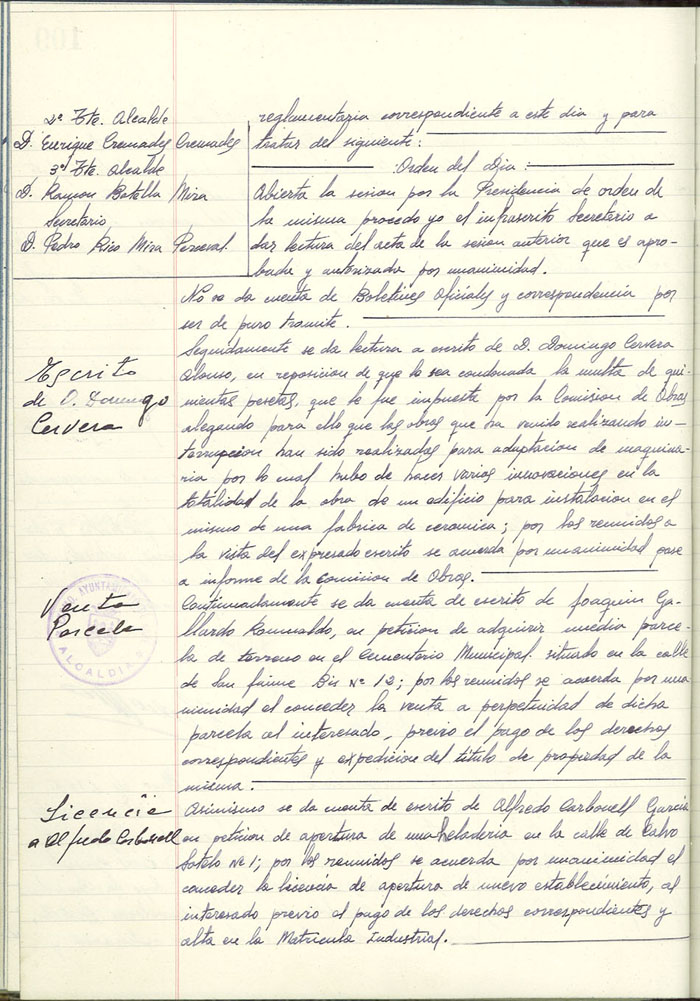 2º Tte. Alcalde
D. Enrique Cremades Cremades
3º Tte. Alcalde
D. Ramon Botella Mira
Secretario
D. Pedro Rico Mira Perceval.
reglamentaria correspondiente a este dia y para
tratar del siguiente:
Orden del Dia:
Abierta la sesion por la Presidencia de orden de
la misma procedo yo el infrascrito Secretario a
dar lectura del acta de la sesion anterior que es apro-
bada y autorizada por unanimidad.
No se da cuenta de Boletines Oficiales y correspondencia por
ser de puro tramite.
Escrito
de D. Domingo
Cervera
Seguidamente se da lectura a escrito de D. Domingo Cervera
Alonso, en reposicion de que le sea condonada la multa de qui-
nientas pesetas, que le fue impuesta por la Comision de Obras
alegando para ello que las obras que ha venido realizando in-
terrupcion han sido realizadas para adaptacion de maquina-
ria por lo cual hubo de hacer varias innovaciones en la
totalidad de la obra de un edificio para instalacion en el
mismo de una fabrica de ceramica; por los reunidos a
la vista del expresado escrito se acuerda por unanimidad pase
a informe de la Comision de Obras.
Venta
Parcela
AYUNTAMIENTO
ALCALDIA
Continuadamente se da cuenta de escrito de Joaquin Ga-
llardo Romualdo, en peticion de adquirir media parce-
la de terreno en el Cementerio Municipal situado en la calle
de San Jaime Bis Nº 12; por los reunidos se acuerda por una
nimidad el conceder la venta a perpetuidad de dicha
parcela al interesado, previo el pago de los derechos
correspondientes y expedicion del titulo de propiedad de la
misma.
Licencia
a Alfredo Carbonell
Asimismo se da cuenta de escrito de Alfredo Carbonell Garcia
en peticion de apertura de una heladeria en la calle de Calvo
Sotelo Nº 1; por los reunidos se acuerda por unanimidad el
conceder la licencia de apertura de nuevo establecimiento, al
interesado previo el pago de los derechos correspondientes y
alta en la Matricula Industrial.